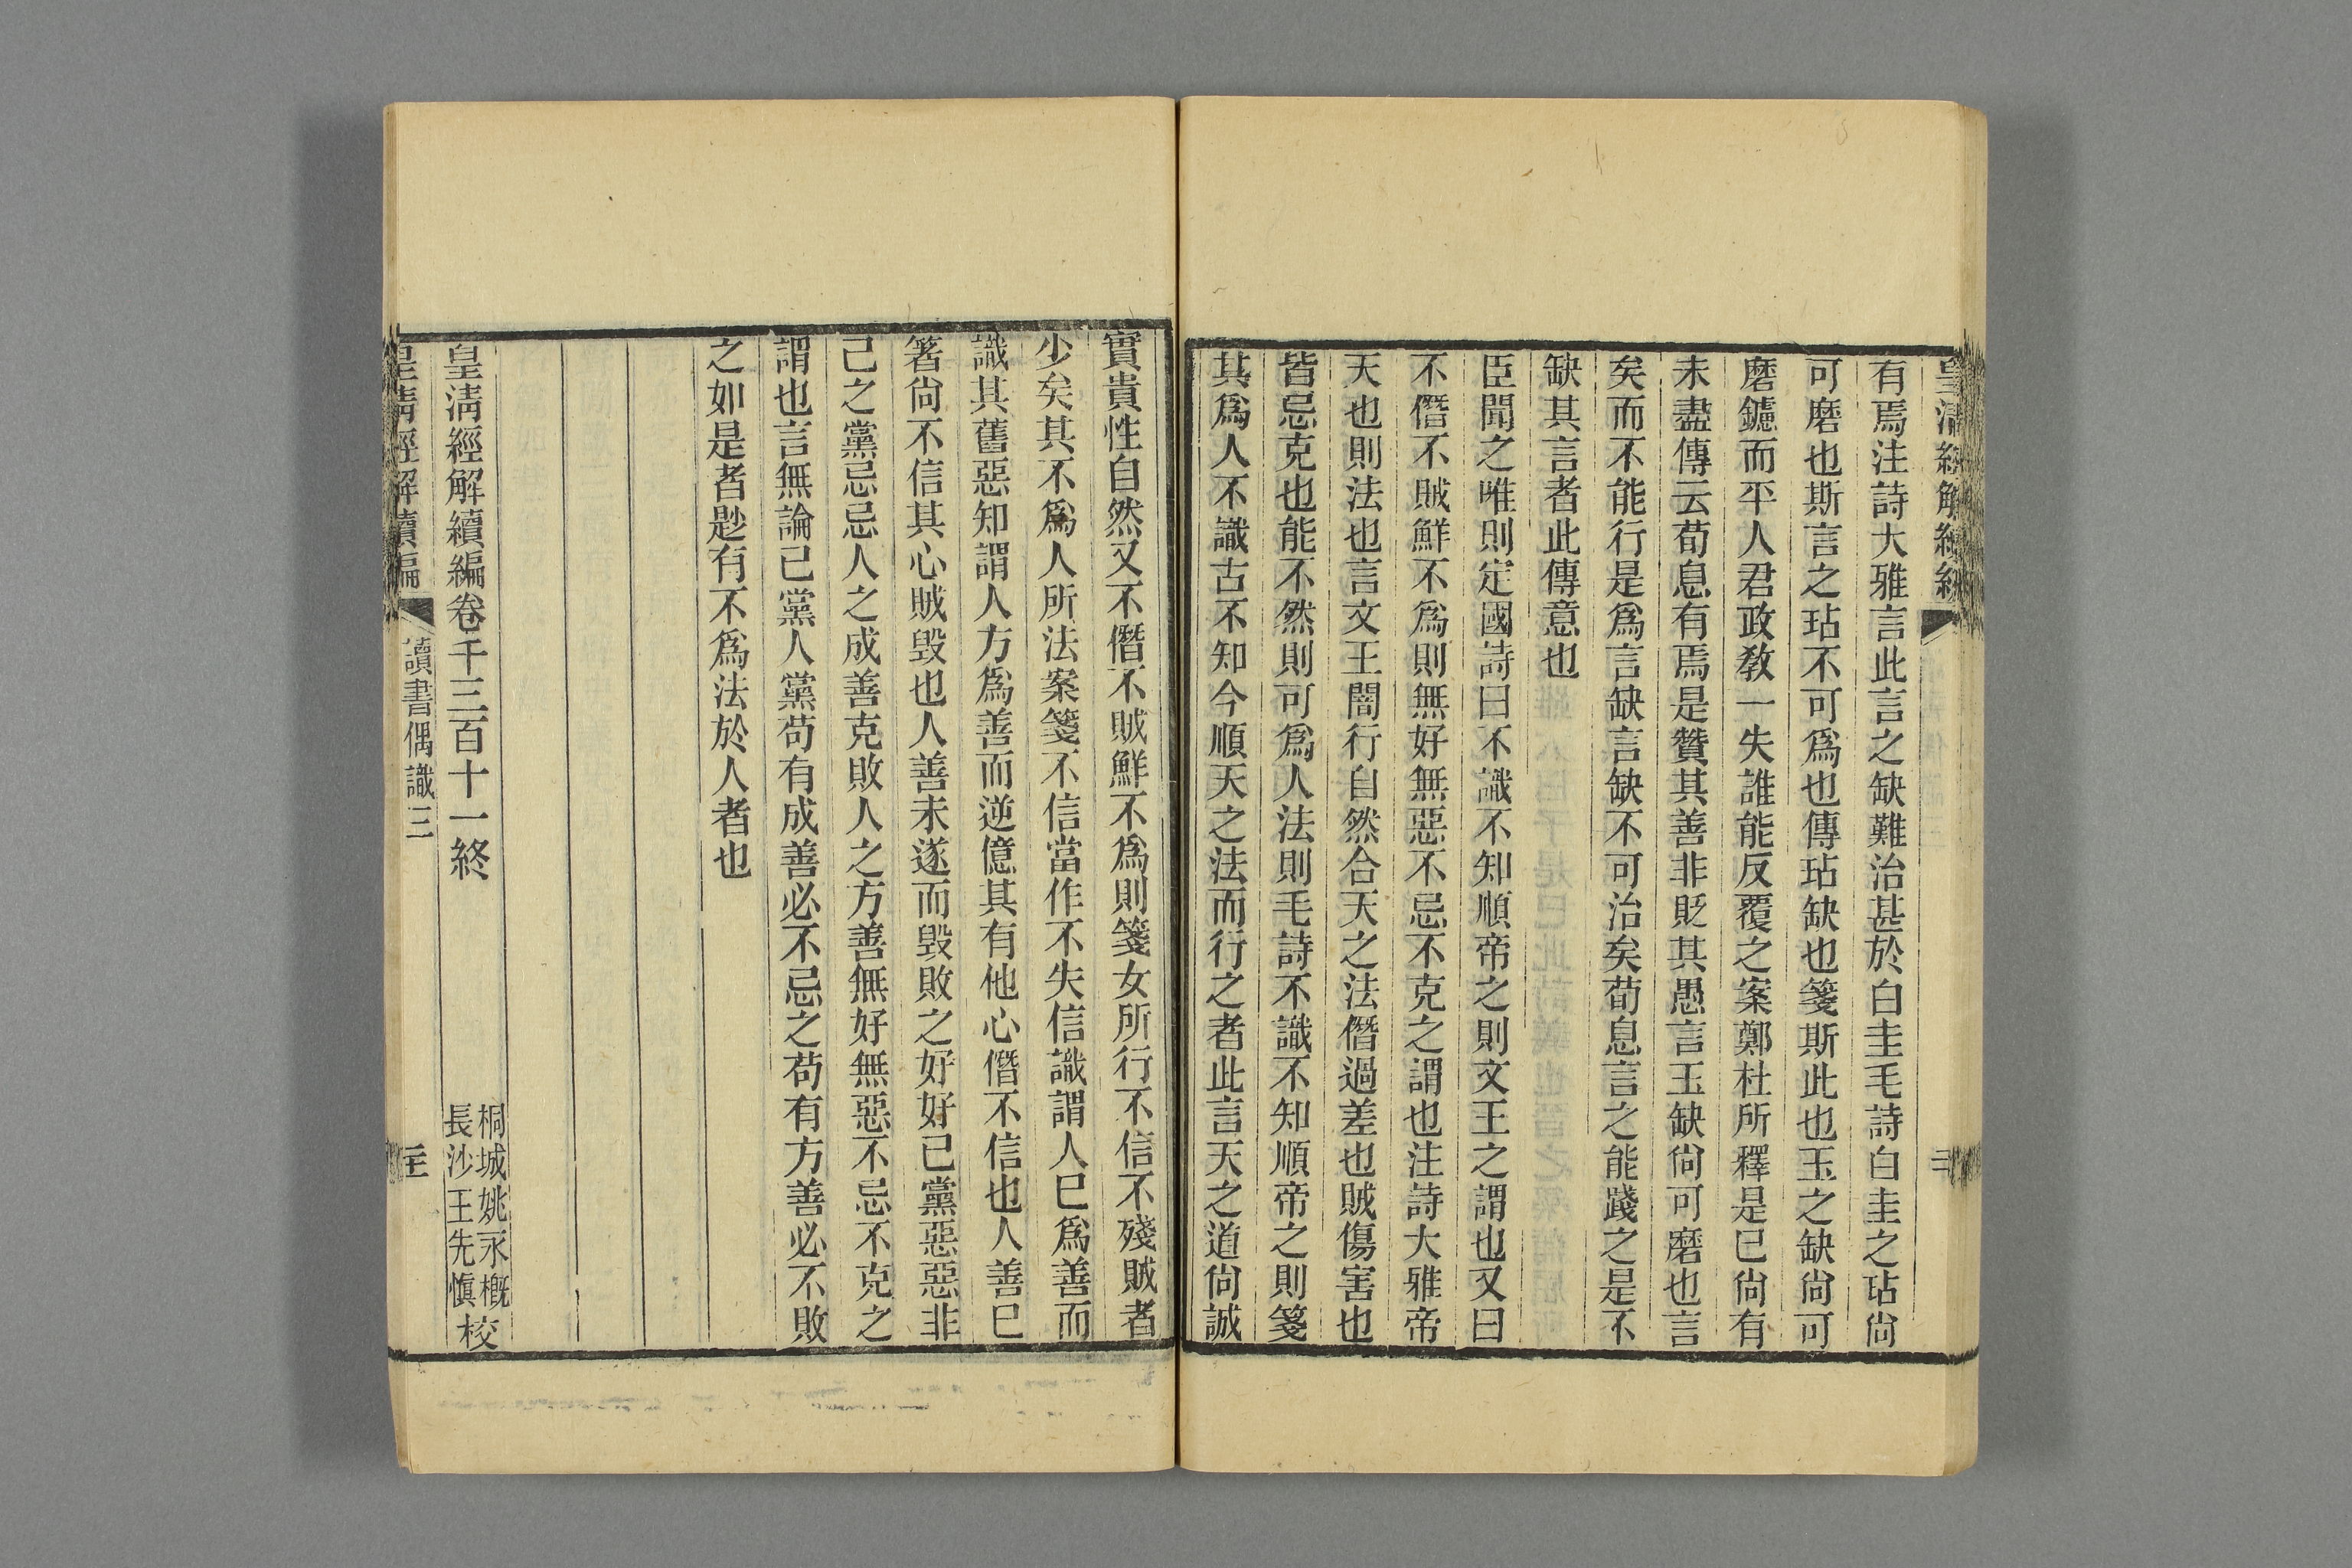 有焉注詩大雅言此言之缺難治甚於白圭毛詩白圭之玷尙
可磨也斯言之玷不可爲也傳玷缺也箋斯此也玉之缺尙可
磨鑢而平人君政敎一失誰能反覆之案鄭杜所釋是已尙有
未盡傳云荀息有焉是贊其善非貶其愚言玉缺尙可磨也言
矣而不能行是爲言缺言缺不可治矣荀息言之能踐之是不
缺其言者此傳意也
臣聞之唯則定國詩曰不識不知順帝之則文王之謂也又曰
不僭不賊鮮不爲則無好無惡不忌不克之謂也注詩大雅帝
天也則法也言文王闇行自然合天之法僭過差也賊傷害也
皆忌克也能不然則可爲人法則毛詩不識不知順帝之則箋
其爲人不識古不知今順天之法而行之者此言天之道尙誠
實貴性自然又不僭不賊鮮不爲則箋女所行不信不殘賊者
少矣其不爲人所法案箋不信當作不失信識謂人巳爲善而
識其舊惡知謂人方爲善而逆億其有他心僭不信也人善巳
箸尙不信其心賊毀也人善未遂而毀敗之好好己黨惡惡非
己之黨忌忌人之成善克敗人之方善無好無惡不忌不克之
謂也言無論己黨人黨苟有成善必不忌之苟有方善必不敗
之如是者尟有不爲法於人者也
皇淸經解續編卷千三百十一終
桐城姚永概
長沙王先愼校
皇淸經解續編
讀書偶識三